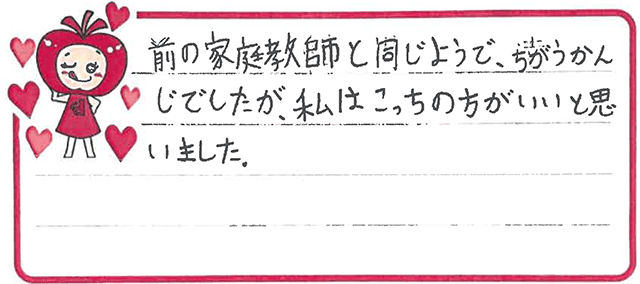 前の家庭教師と同じようで、ちがうかん
じでしたが、私はこっちの方がいいと思
いました。